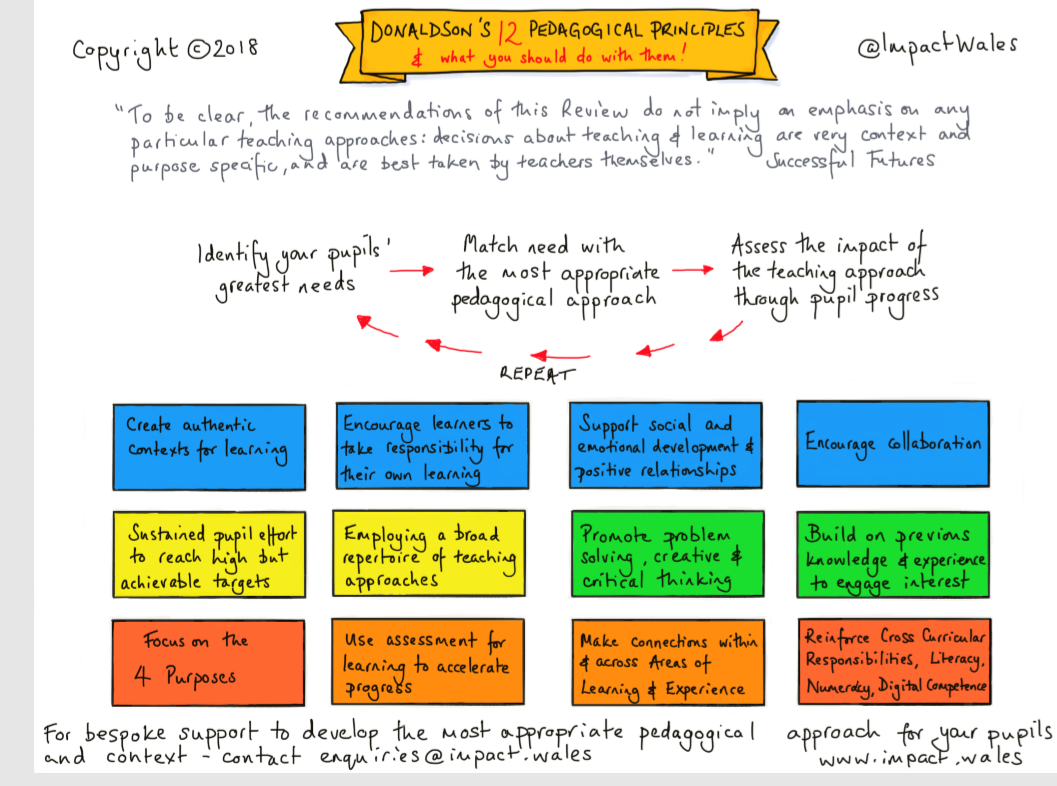 Copyright ©2018
DONALDSON'S 12 PEDAGOGICAL PRINCIPLES
& what you should do with them!
@ImpactWales
"To be clear, the recommendations of this Review do not imply an emphasis on any
particular teaching approaches: decisions about teaching & learning are very context and
purpose specific, and are best taken by teachers themselves." Successful Futures
Identify your pupils'
greatest needs
Match need with
the most appropriate
pedagogical approach
Assess the impact of
the teaching approach
through pupil progress
REPEAT
Create authentic
contexts for learning
Encourage learners to
take responsibility for
their own learning
Support social and
emotional development &
positive relationships
Encourage collaboration
Sustained pupil effort
to reach high but
achievable targets
Employing a broad
repertoire of teaching
approaches
Promote problem
solving, creative &
critical thinking
Build on previous
knowledge & experience
to engage interest
Focus on the
4 Purposes
Use assessment for
learning to accelerate
progress
Make connections within
& across Areas of
Learning & Experience
Reinforce Cross Curricular
Responsibilities, Literacy,
Numeracy, Digital Competence
For bespoke support to develop the most appropriate pedagogical approach for your pupils
and context - contact enquiries@impact.wales www.impact.wales